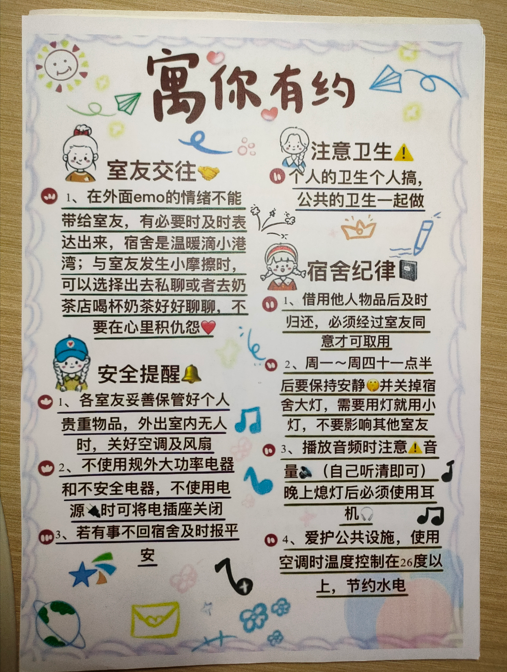 寓你有约
室友交往
1、在外面emo的情绪不能
带给室友，有必要时及时表
达出来，宿舍是温暖滴小港
湾；与室友发生小摩擦时，
可以选择出去私聊或者去奶
茶店喝杯奶茶好好聊聊，不
要在心里积仇怨❤️
安全提醒🔔
1、各室友妥善保管好个人
贵重物品，外出室内无人
时，关好空调及风扇
2、不使用规外大功率电器
和不安全电器，不使用电
源🔌时可将电插座关闭
3、若有事不回宿舍及时报平
安
注意卫生⚠️
个人的卫生个人搞，
公共的卫生一起做
宿舍纪律
1、借用他人物品后及时
归还，必须经过室友同
意才可取用
2、周一～周四十一点半
后要保持安静🤫并关掉宿
舍大灯，需要用灯就用小
灯，不要影响其他室友
3、播放音频时注意⚠️音
量🔊（自己听清即可）
晚上熄灯后必须使用耳
机🎧
4、爱护公共设施，使用
空调时温度控制在26度以
上，节约水电